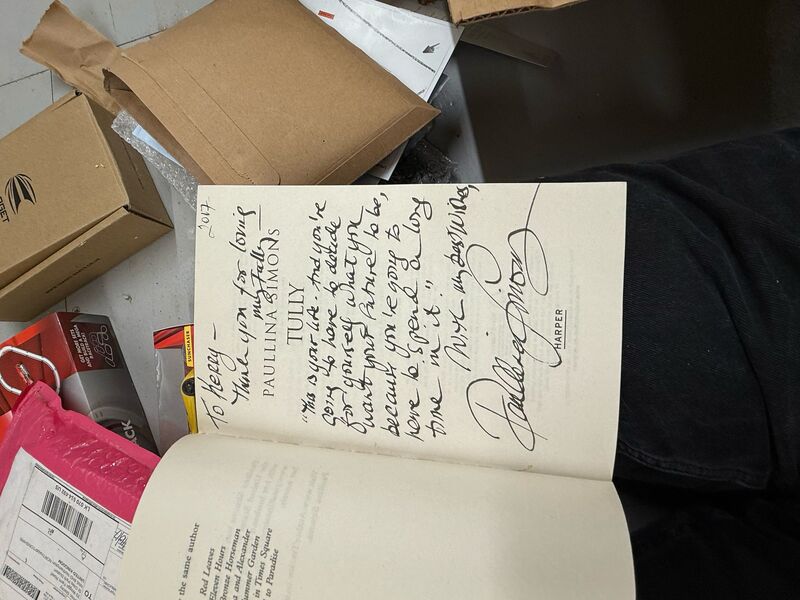 2017
To Kerry –
Thank you for loving
my Tully
PAULLINA SIMONS
TULLY
"This is your life. And you're
going to have to decide
for yourself what you
want your future to be,
because you're going to
have to spend a long
time in it."
With my best wishes,
Paullina Simons
HARPER
the same author
Red Leaves
Eleven Hours
Bronze Horseman
and Alexander
Summer Garden
in Times Square
to Paradise